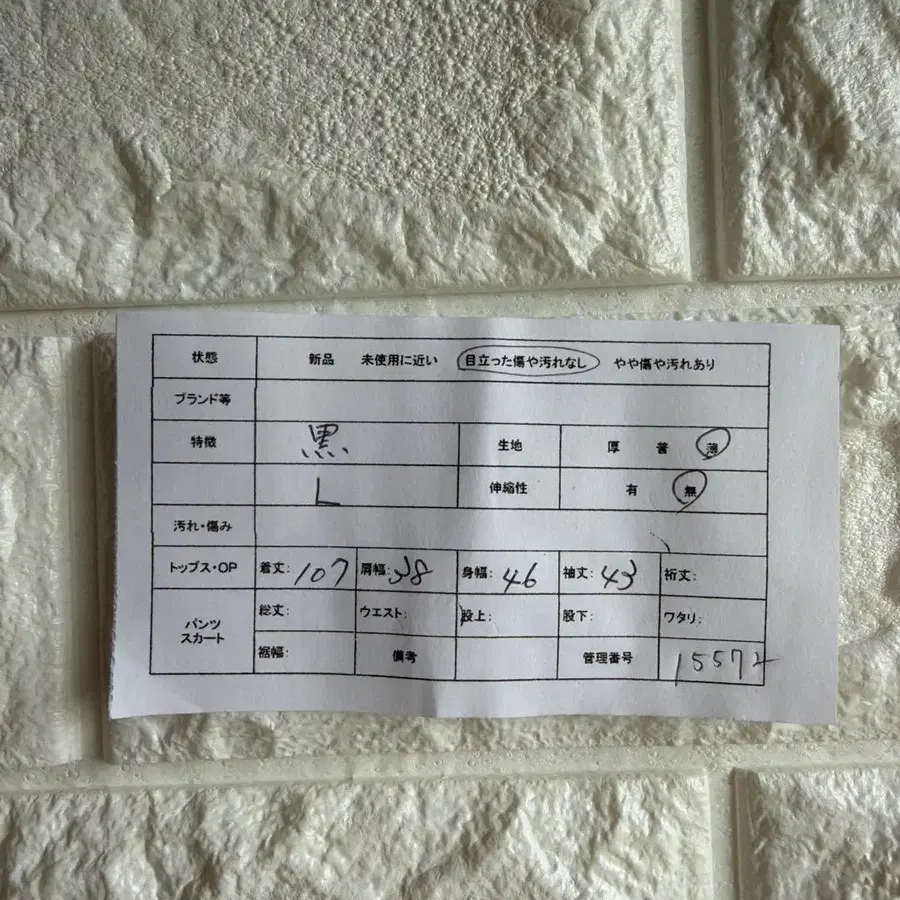 状態 新品 未使用に近い 目立った傷や汚れなし やや傷や汚れあり
ブランド等
特徴 黒 生地 厚 普 薄
L 伸縮性 有 無
汚れ・傷み
トップス・OP 着丈: 107 肩幅: 38 身幅: 46 袖丈: 43 裄丈:
パンツ スカート 総丈: ウエスト: 股上: 股下: ワタリ:
裾幅: 備考 管理番号 15572